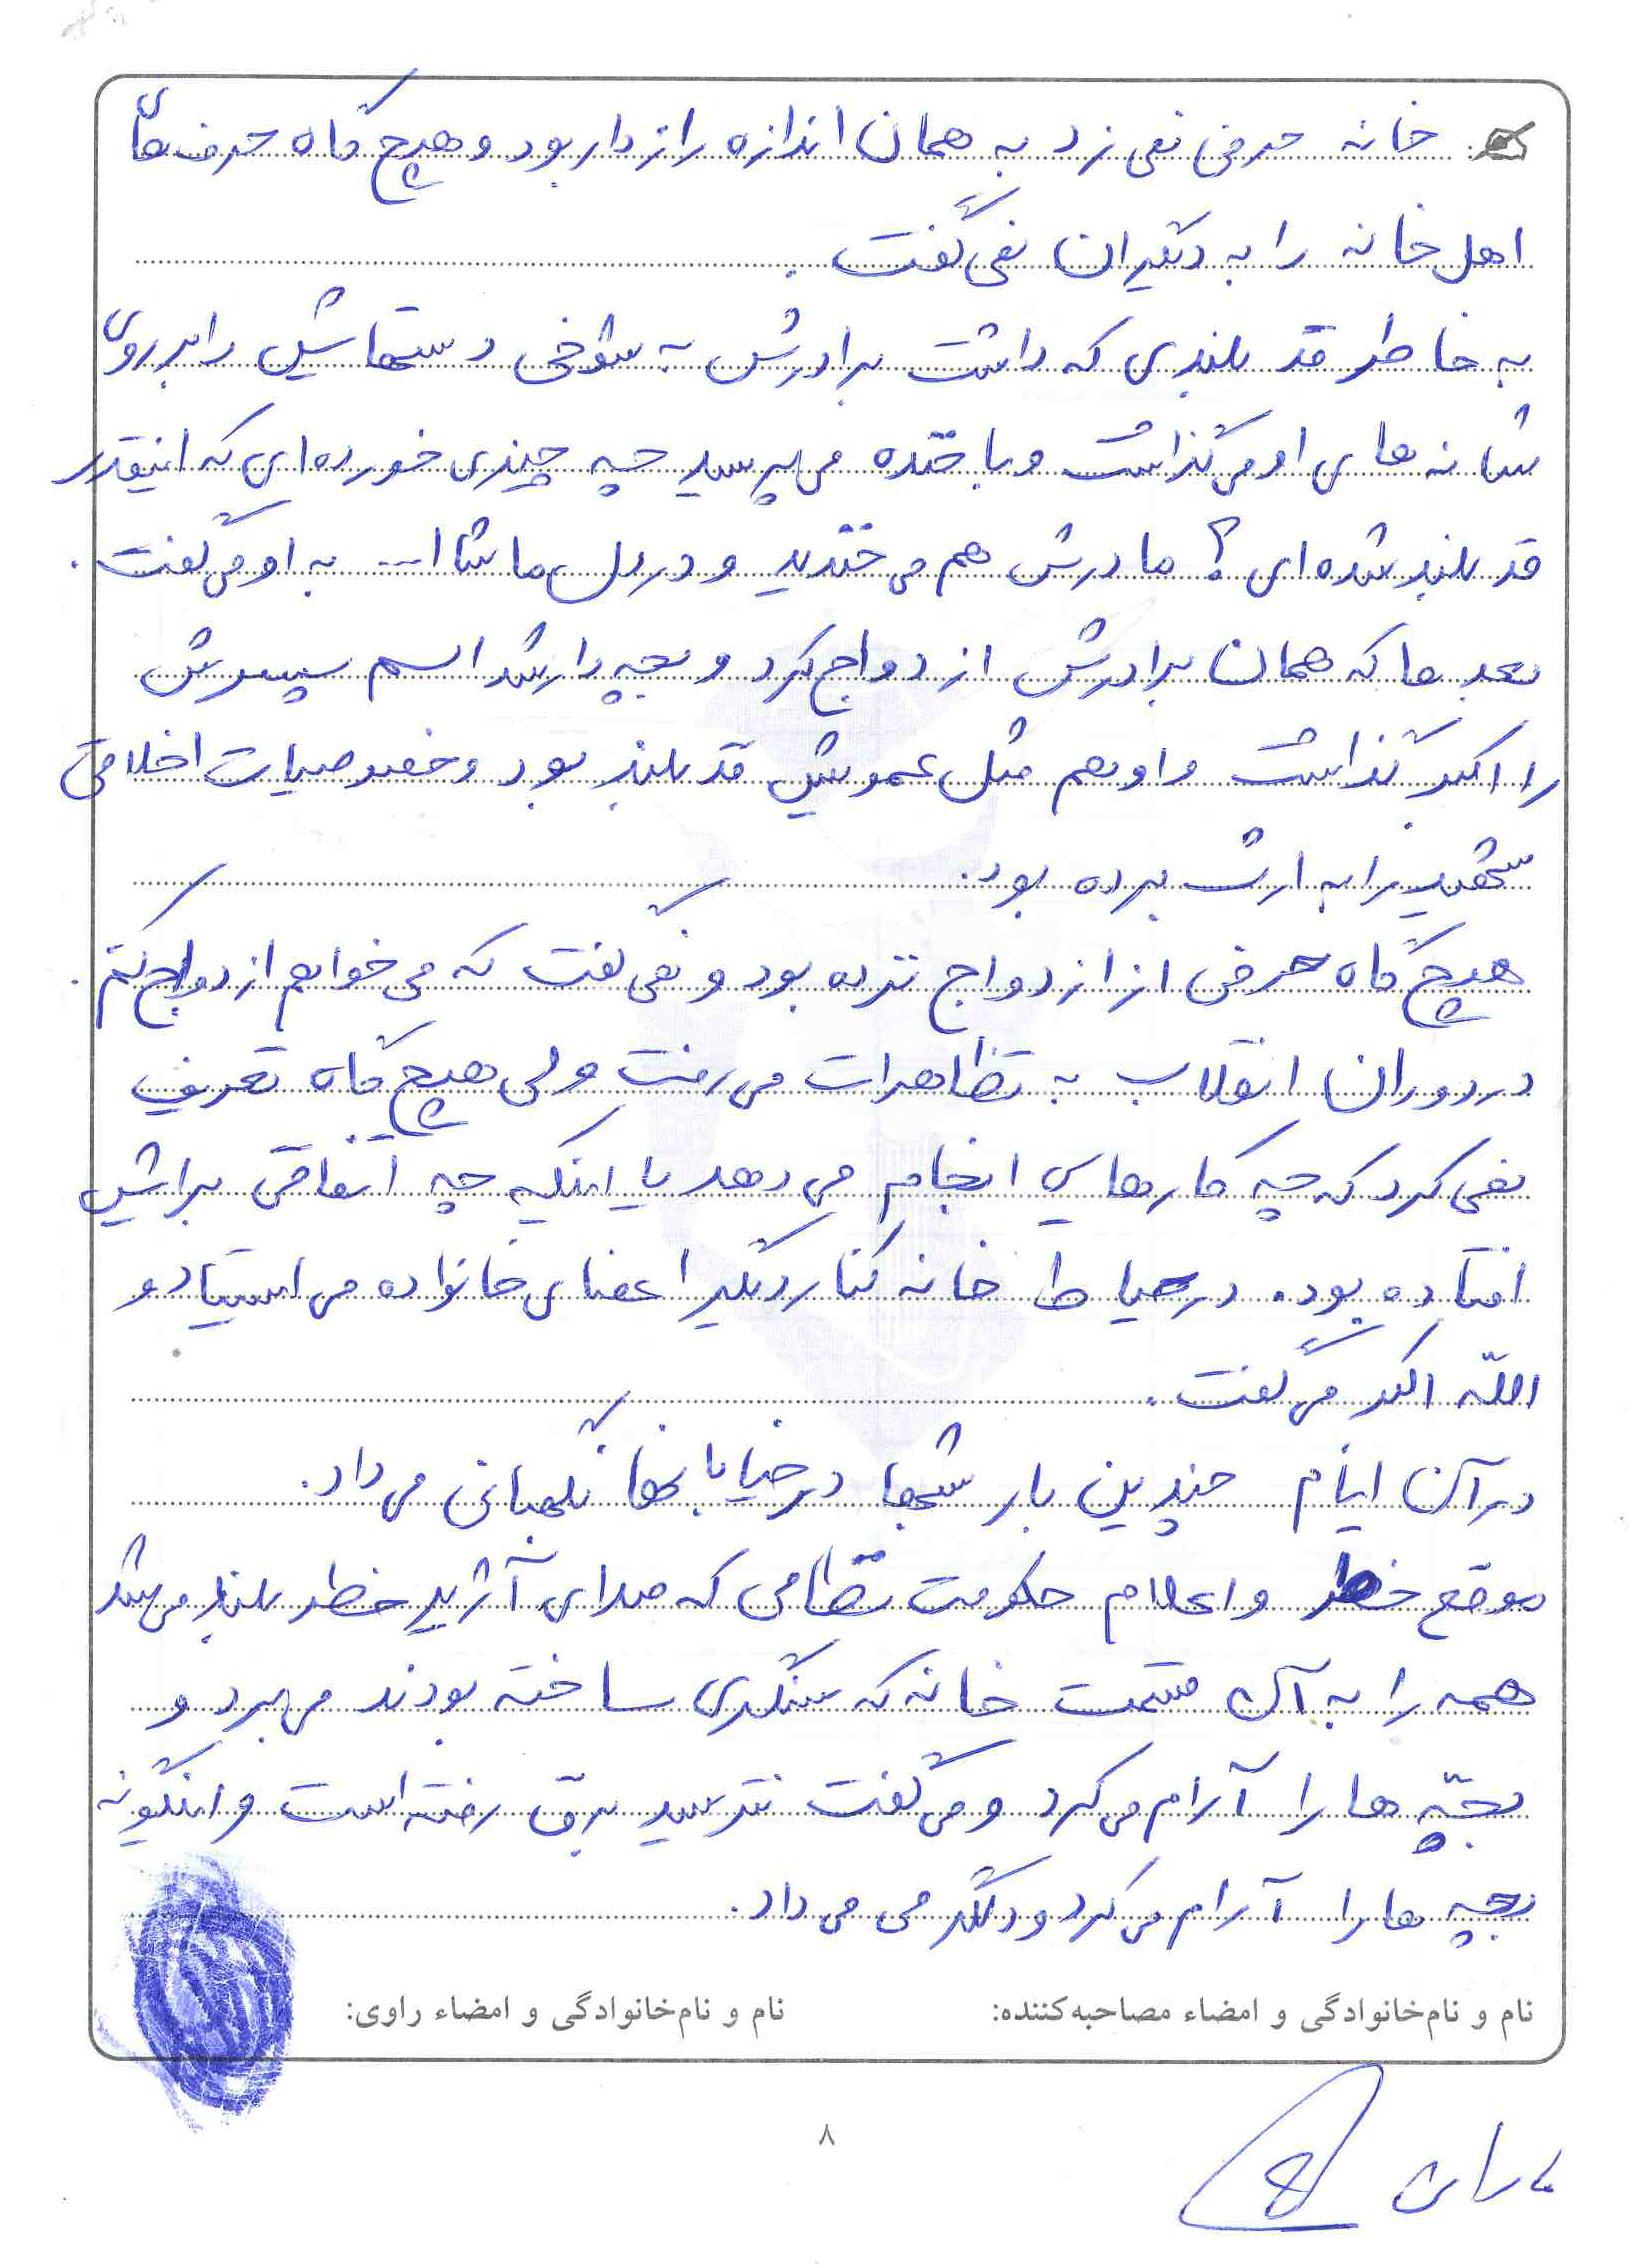 خانه حرفی نمی زد به همان اندازه رازدار بود و هیچ گاه حرف های
اهل خانه را به دیگران نمی گفت.
به خاطر قد بلندی که داشت برادرش به شوخی دستهاش را بر روی
شانه های او می گذاشت و با خنده می پرسید چه چیزی خورده ای که اینقدر
قد بلند شده ای؟ مادرش هم می خندید و در دل ماشاا... به او می گفت.
بعد ها که همان برادرش ازدواج کرد و بچه دار شد اسم پسرش
را اکبر گذاشت و او هم مثل عمویش قد بلند بود و خصوصیات اخلاقی
شهید را به ارث برده بود.
هیچ گاه حرفی از ازدواج نزده بود و نمی گفت که می خواهم ازدواج کنم.
در دوران انقلاب به تظاهرات می رفت ولی هیچ گاه تعریف
نمی کرد که چه کارهایی انجام می دهد یا اینکه چه اتفاقی براش
افتاده بود. در حیاط خانه کنار دیگر اعضای خانواده می ایستاد و
الله اکبر می گفت.
در آن ایام چندین بار شبها در خیابانها نگهبانی می داد.
موقع خطر و اعلام حکومت نظامی که صدای آژیر خطر بلند می شد
همه را به آن قسمت خانه که سنگری ساخته بودند می برد و
بچّه ها را آرام می کرد و می گفت نترسید برق رفته است و اینگونه
بچه ها را آرام می کرد و دلگرمی می داد.
نام و نام‌خانوادگی و امضاء مصاحبه‌کننده: نام و نام‌خانوادگی و امضاء راوی:
۸